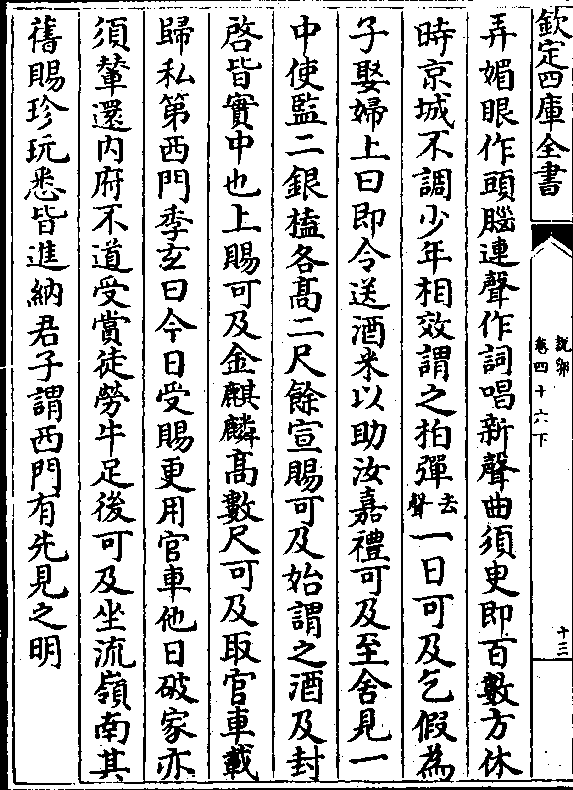 欽定四庫全書
說郛
卷四十六下
十三
弄媚眼作頭腦連聲作詞唱新聲曲須臾即百數方休
時京城不調少年相效謂之拍彈去聲一日可及乞假為
子娶婦上曰即令送酒米以助汝嘉禮可及至舍見一
中使監二銀榼各高二尺餘宣賜可及始謂之酒及封
啓皆實中也上賜可及金麒麟高數尺可及取官車載
歸私第西門季玄曰今日受賜更用官車他日破家亦
須輦還内府不道受賞徒勞牛足後可及坐流嶺南其
舊賜珍玩悉皆進納君子謂西門有先見之明